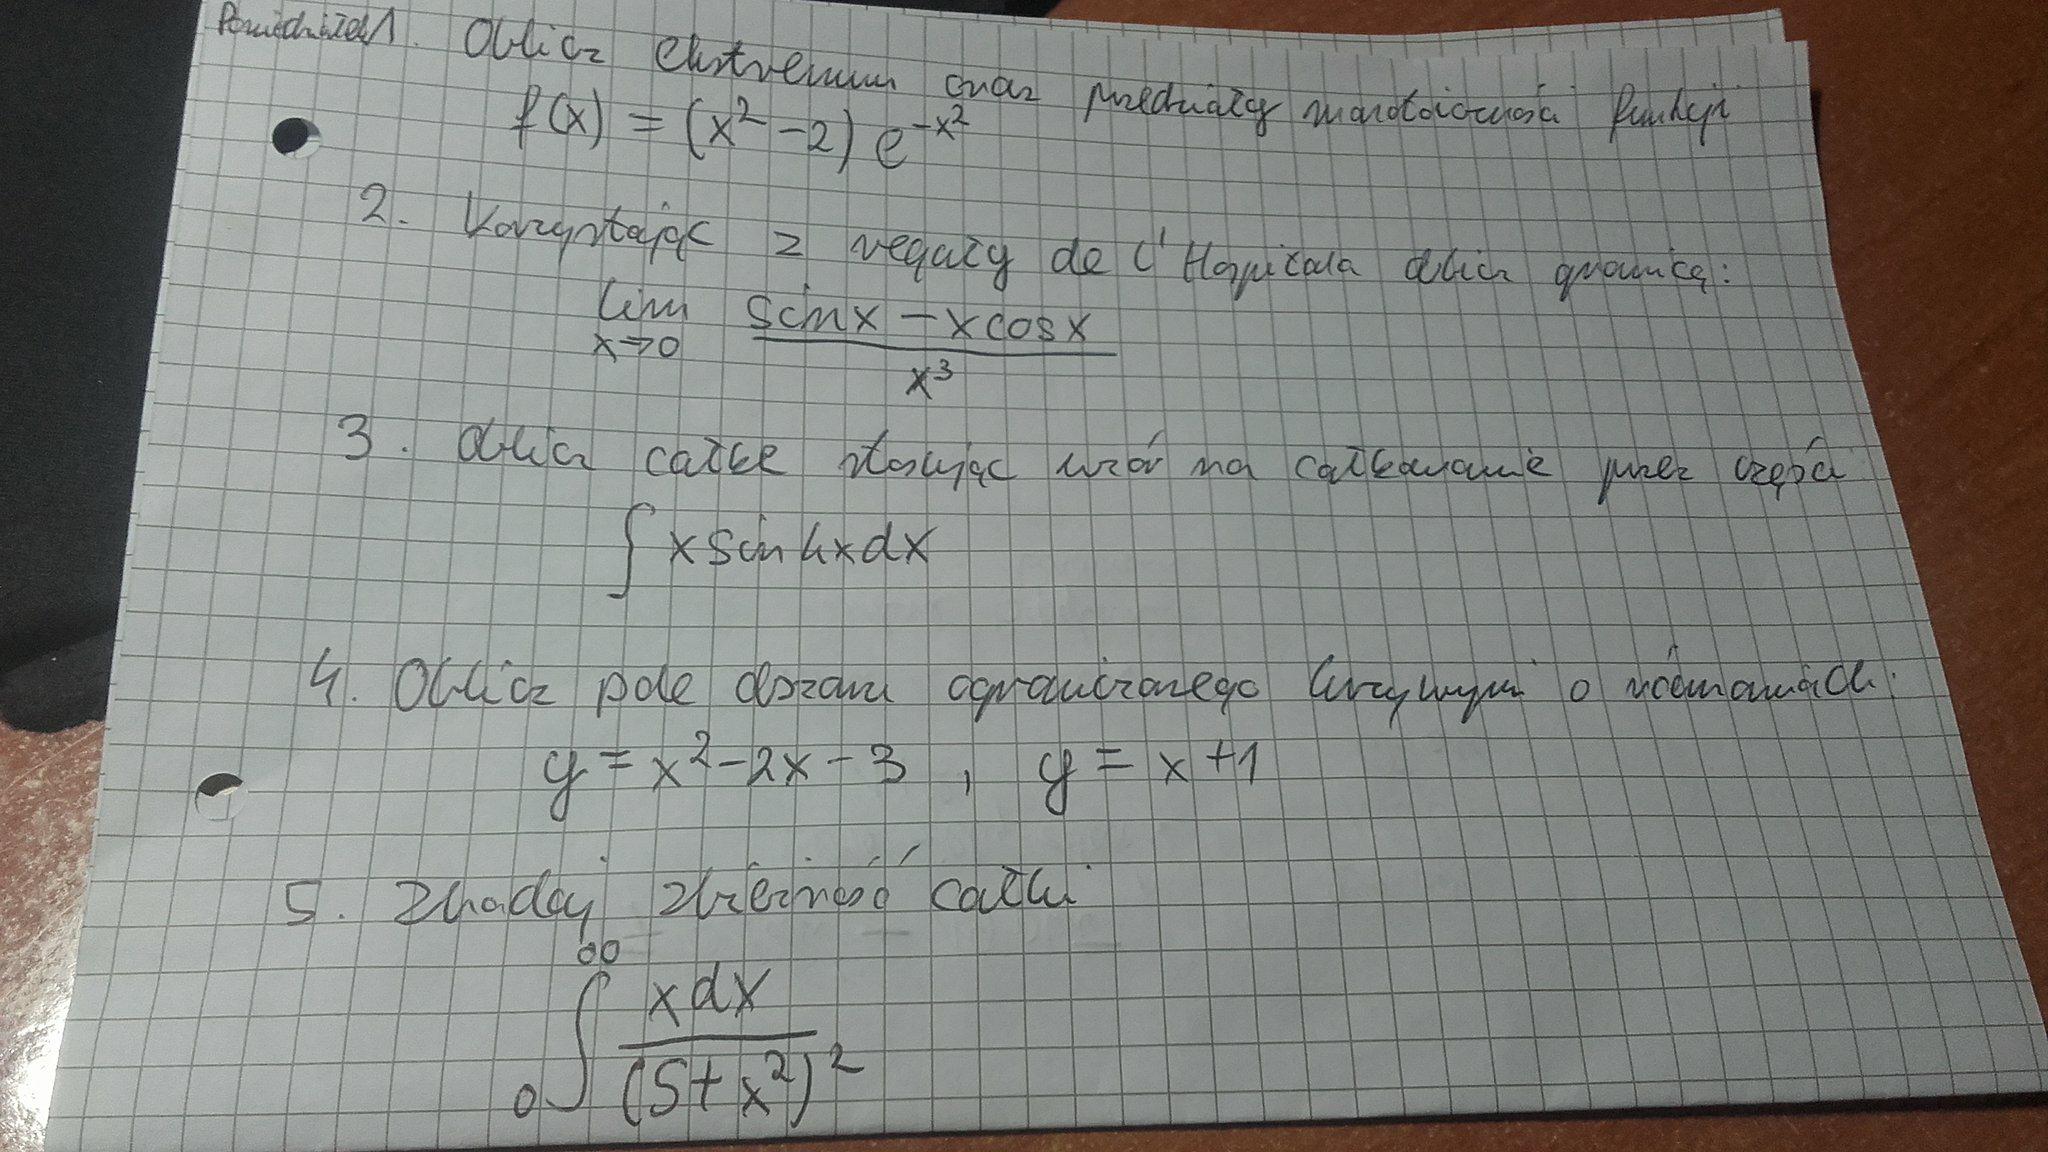 Poniedziałek 1. Oblicz ekstremum oraz przedziały monotoiczności funkcji
f(x) = (x² - 2) e^-x²
2. Korzystając z reguły de l'Hospitala oblicz granicę:
lim x→0 (sinx - xcosx) / x³
3. Oblicz całke stosując wzór na całkowanie przez części
∫ x sin4x dx
4. Oblicz pole obszaru ograniczonego krzywymi o równaniach:
y = x² - 2x - 3 , y = x + 1
5. Zbadaj zbieżność całki
∞
∫ xdx / (5 + x²)²
0